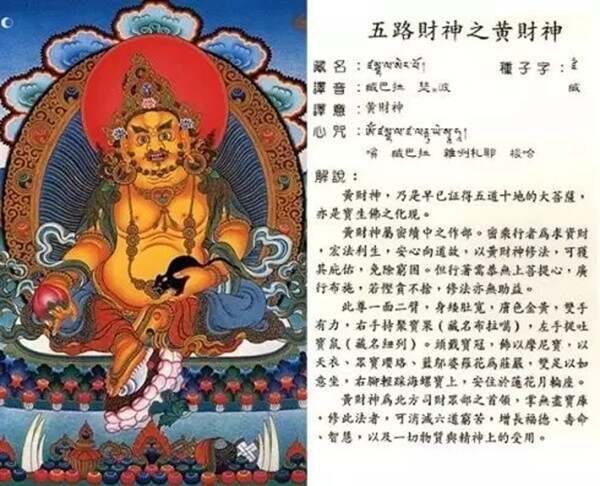 五路財神之黃財神
藏名： 種子字：
譯音：臧巴拉 瑟。波 臧
譯意：黃財神
心咒：
嗡 臧巴拉 雜州札耶 梭哈
解說：
黃財神，乃是早已証得五道十地的大菩薩，
亦是寶生佛之化現。
黃財神屬密續中之作部。密乘行者為求資財
，宏法利生，安心向道故，以黃財神修法，可獲
其庇佑，免除窮困。但行著需恭無上菩提心，廣
行布施，若慳貪不捨，修法亦無助益。
此尊一面二臂，身矮肚寬，膚色金黃，雙手
有力，右手持聚寶果（藏名布拉喀），左手捉吐
寶鼠（藏名細列）。頭戴寶冠，飾以摩尼寶，以
天衣、眾寶瓔珞、藍鄔婆羅花為莊嚴，雙足以如
意坐，右腳輕踩海螺寶上，安住於蓮花月輪座。
黃財神為北方司財眾部之首領，掌無盡寶庫
，修此法者，可消滅六道窮苦，增長福德、壽命
、智慧，以及一切物質與精神上的受用。